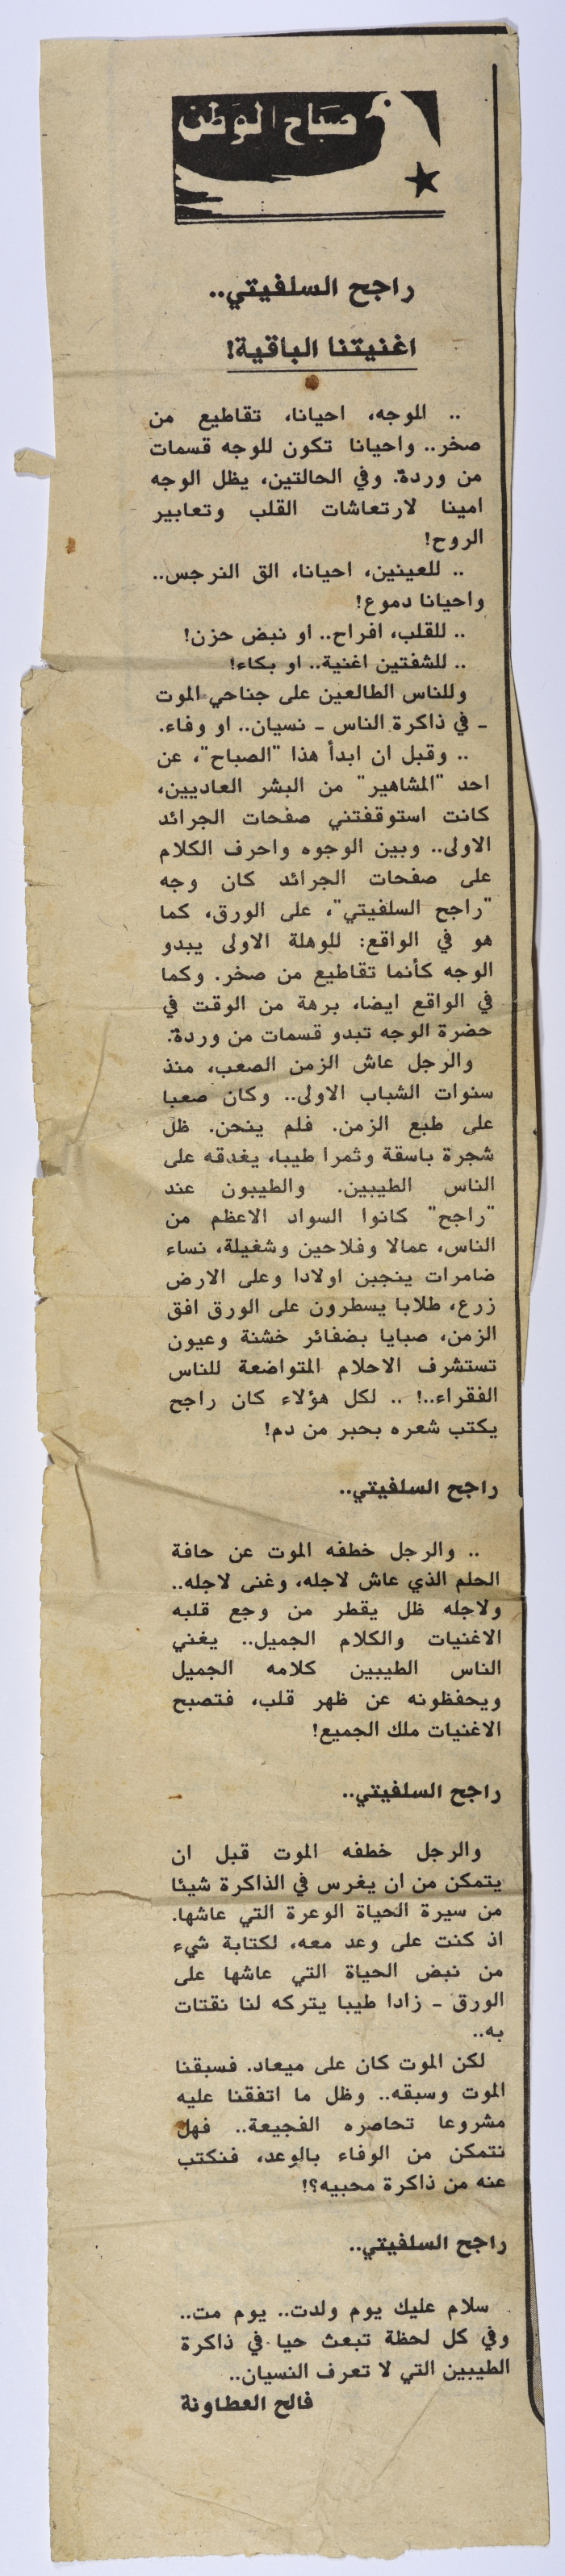 صباح الوطن
راجح السلفيتي..
اغنيتنا الباقية!
.. للوجه، احيانا، تقاطيع من
صخر.. واحيانا تكون للوجه قسمات
من وردة. وفي الحالتين، يظل الوجه
امينا لارتعاشات القلب وتعابير
الروح!
.. للعينين، احيانا، الق النرجس..
واحيانا دموع!
.. للقلب، افراح.. او نبض حزن!
.. للشفتين اغنية.. او بكاء!
وللناس الطالعين على جناحي الموت
ـ في ذاكرة الناس ـ نسيان.. او وفاء.
.. وقبل ان ابدأ هذا "الصباح"، عن
احد "المشاهير" من البشر العاديين،
كانت استوقفتني صفحات الجرائد
الاولى.. وبين الوجوه واحرف الكلام
على صفحات الجرائد كان وجه
"راجح السلفيتي"، على الورق، كما
هو في الواقع: للوهلة الاولى يبدو
الوجه كأنما تقاطيع من صخر. وكما
في الواقع ايضا، برهة من الوقت في
حضرة الوجه تبدو قسمات من وردة.
والرجل عاش الزمن الصعب، منذ
سنوات الشباب الاولى.. وكان صعبا
على طبع الزمن. فلم ينحن. ظل
شجرة باسقة وثمرا طيبا، يغدقه على
الناس الطيبين. والطيبون عند
"راجح" كانوا السواد الاعظم من
الناس، عمالا وفلاحين وشغيلة، نساء
ضامرات ينجبن اولادا وعلى الارض
زرع، طلابا يسطرون على الورق افق
الزمن، صبايا بضفائر خشنة وعيون
تستشرف الاحلام المتواضعة للناس
الفقراء..! .. لكل هؤلاء كان راجح
يكتب شعره بحبر من دم!
راجح السلفيتي..
.. والرجل خطفه الموت عن حافة
الحلم الذي عاش لاجله، وغنى لاجله..
ولاجله ظل يقطر من وجع قلبه
الاغنيات والكلام الجميل.. يغني
الناس الطيبين كلامه الجميل
ويحفظونه عن ظهر قلب، فتصبح
الاغنيات ملك الجميع!
راجح السلفيتي..
والرجل خطفه الموت قبل ان
يتمكن من ان يغرس في الذاكرة شيئا
من سيرة الحياة الوعرة التي عاشها.
اذ كنت على وعد معه، لكتابة شيء
من نبض الحياة التي عاشها على
الورق ـ زادا طيبا يتركه لنا نقتات
به..
لكن الموت كان على ميعاد. فسبقنا
الموت وسبقه.. وظل ما اتفقنا عليه
مشروعا تحاصره الفجيعة.. فهل
نتمكن من الوفاء بالوعد، فنكتب
عنه من ذاكرة محبيه؟!
راجح السلفيتي..
سلام عليك يوم ولدت.. يوم مت..
وفي كل لحظة تبعث حيا في ذاكرة
الطيبين التي لا تعرف النسيان..
فالح العطاونة